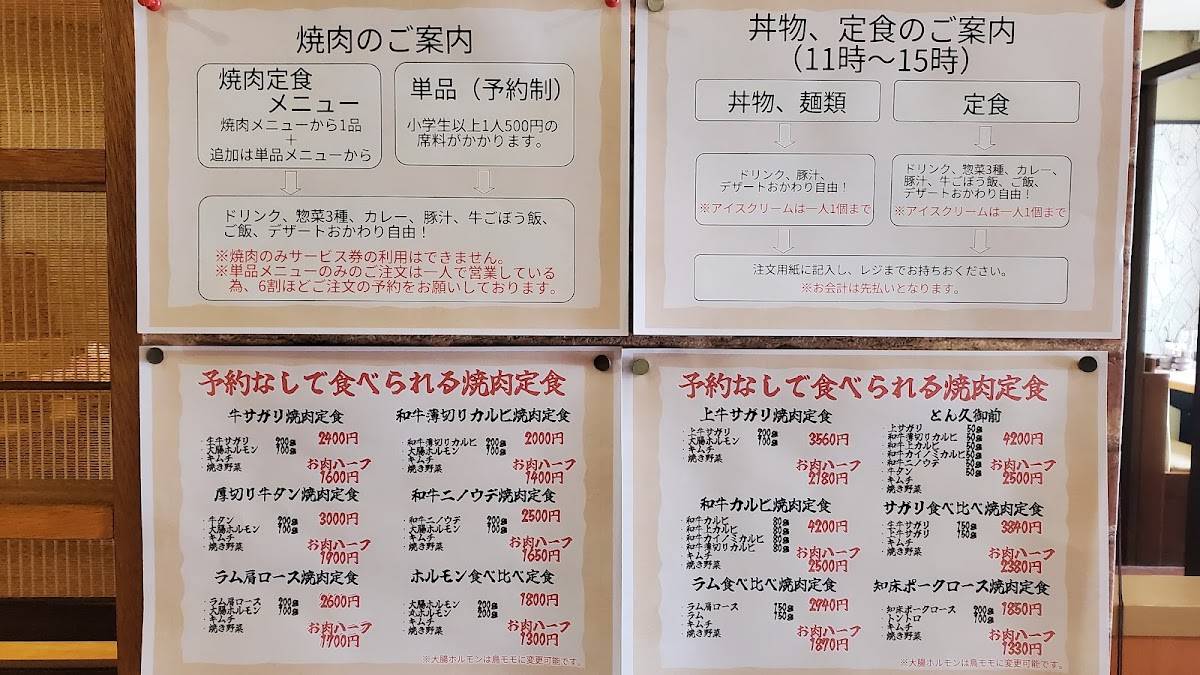 焼肉のご案内
焼肉定食
メニュー
焼肉メニューから1品
+
追加は単品メニューから
単品（予約制）
小学生以上1人500円の
席料がかかります。
ドリンク、惣菜3種、カレー、豚汁、牛ごぼう飯、
ご飯、デザートおかわり自由！
※焼肉のみサービス券の利用はできません。
※単品メニューのみのご注文は一人で営業している
為、6割ほどご注文の予約をお願いしております。
丼物、定食のご案内
（11時～15時）
丼物、麺類
定食
ドリンク、豚汁、
デザートおかわり自由！
※アイスクリームは一人1個まで
ドリンク、惣菜3種、カレー、
豚汁、牛ごぼう飯、ご飯、
デザートおかわり自由！
※アイスクリームは一人1個まで
注文用紙に記入し、レジまでお持ちおください。
※お会計は先払いとなります。
予約なしで食べられる焼肉定食
牛サガリ焼肉定食
・生牛サガリ 200g
・大腸ホルモン 100g
・キムチ
・焼き野菜
2400円
お肉ハーフ
1600円
和牛薄切りカルビ焼肉定食
・和牛薄切りカルビ 200g
・大腸ホルモン 100g
・キムチ
・焼き野菜
2000円
お肉ハーフ
1400円
厚切り牛タン焼肉定食
・牛タン 200g
・大腸ホルモン 100g
・キムチ
・焼き野菜
3000円
お肉ハーフ
1900円
和牛ニノウデ焼肉定食
・和牛ニノウデ 200g
・大腸ホルモン 100g
・キムチ
・焼き野菜
2500円
お肉ハーフ
1650円
ラム肩ロース焼肉定食
・ラム肩ロース 200g
・大腸ホルモン 100g
・キムチ
・焼き野菜
2600円
お肉ハーフ
1700円
ホルモン食べ比べ定食
・大腸ホルモン 200g
・丸ホルモン 200g
・キムチ
・焼き野菜
1800円
お肉ハーフ
1300円
※大腸ホルモンは鳥モモに変更可能です。
予約なしで食べられる焼肉定食
上牛サガリ焼肉定食
・上牛サガリ 200g
・大腸ホルモン 100g
・キムチ
・焼き野菜
3560円
お肉ハーフ
2180円
とん久御前
・上サガリ 50g
・和牛薄切りカルビ 50g
・和牛上カルビ 50g
・和牛カイノミカルビ 50g
・和牛ニノウデ 50g
・牛タン 50g
・キムチ
・焼き野菜
4200円
お肉ハーフ
2500円
和牛カルビ焼肉定食
・和牛カルビ 80g
・和牛上カルビ 80g
・和牛カイノミカルビ 80g
・和牛薄切りカルビ 80g
・キムチ
・焼き野菜
4200円
お肉ハーフ
2500円
サガリ食べ比べ焼肉定食
・牛サガリ 150g
・上牛サガリ 150g
・キムチ
・焼き野菜
3840円
お肉ハーフ
2380円
ラム食べ比べ焼肉定食
・ラム肩ロース 150g
・ラム 150g
・キムチ
・焼き野菜
2940円
お肉ハーフ
1870円
知床ポークロース焼肉定食
・知床ポークロース 200g
・トントロ 100g
・キムチ
・焼き野菜
1850円
お肉ハーフ
1330円
※大腸ホルモンは鳥モモに変更可能です。